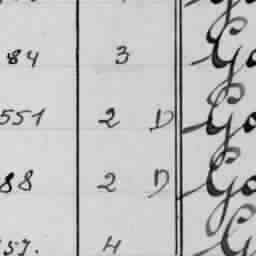 84 3 Go
551 2 D Go
88 2 D Go
57. 4 G